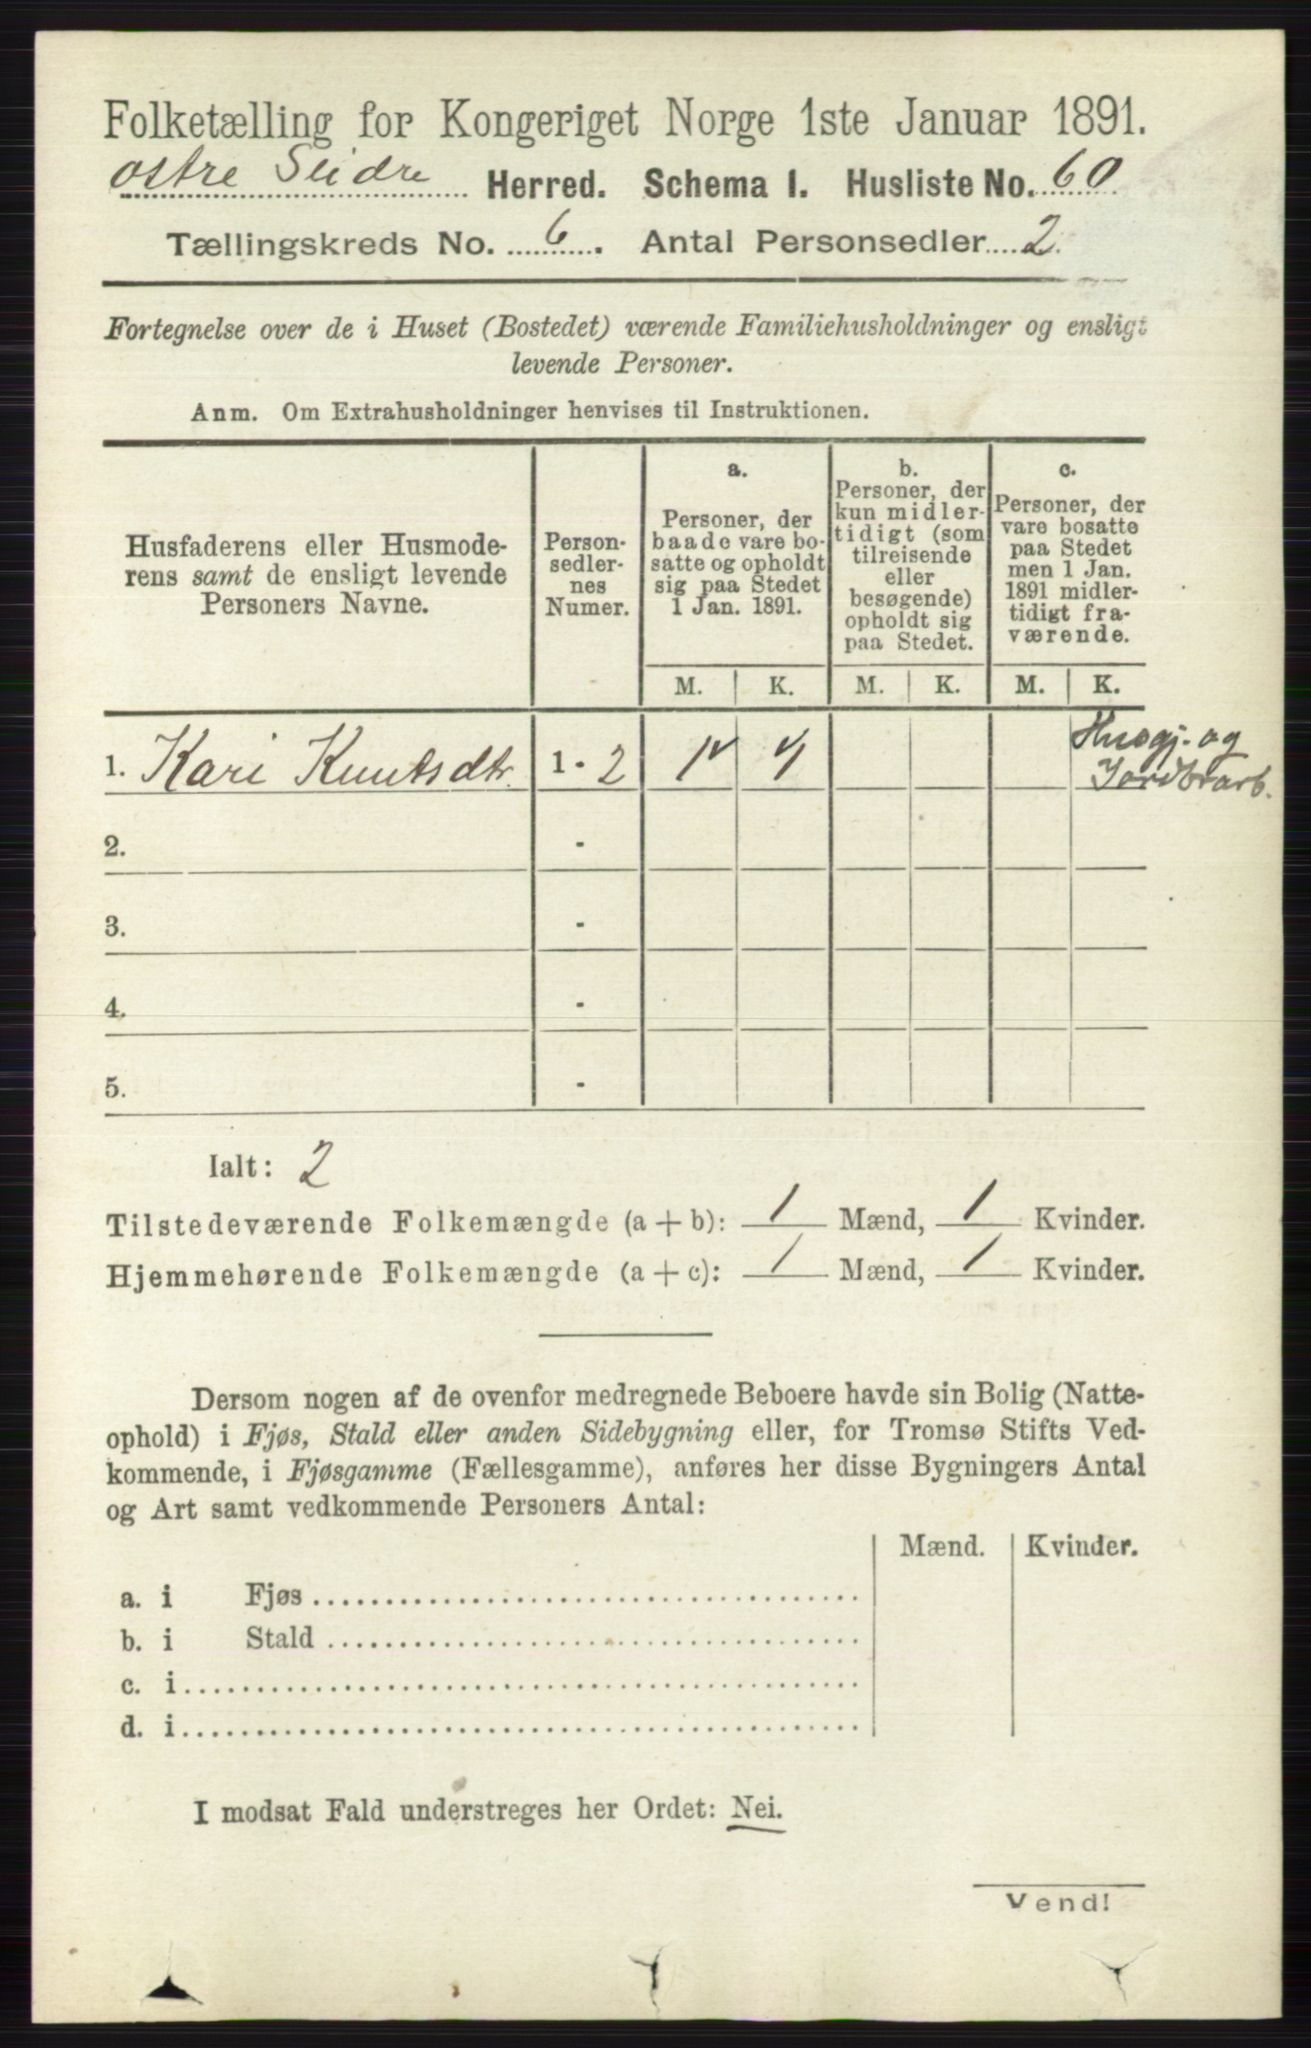 Folketælling for Kongeriget Norge 1ste Januar 1891.
østre Slidre Herred. Schema I. Husliste No. 60
Tællingskreds No. 6. Antal Personsedler 2.
Fortegnelse over de i Huset (Bostedet) værende Familiehusholdninger og ensligt
levende Personer.
Anm. Om Extrahusholdninger henvises til Instruktionen.
Husfaderens eller Husmode-
rens samt de ensligt levende
Personers Navne.
Person-
sedler-
nes
Numer.
a.
Personer, der
baade vare bo-
satte og opholdt
sig paa Stedet
1 Jan. 1891.
b.
Personer, der
kun midler-
tidigt (som
tilreisende
eller
besøgende)
opholdt sig
paa Stedet.
c.
Personer, der
vare bosatte
paa Stedet
men 1 Jan.
1891 midler-
tidigt fra-
værende.
M. K. M. K. M. K.
1. Kari Knutsdtr. 1 - 2 1 1
Husgj. og
Jordbrarb.
2. -
3. -
4. -
5. -
Ialt: 2
Tilstedeværende Folkemængde (a + b): 1 Mænd, 1 Kvinder.
Hjemmehørende Folkemængde (a + c): 1 Mænd, 1 Kvinder.
Dersom nogen af de ovenfor medregnede Beboere havde sin Bolig (Natte-
ophold) i Fjøs, Stald eller anden Sidebygning eller, for Tromsø Stifts Ved-
kommende, i Fjøsgamme (Fællesgamme), anføres her disse Bygningers Antal
og Art samt vedkommende Personers Antal:
Mænd. Kvinder.
a. i Fjøs
b. i Stald
c. i
d. i
I modsat Fald understreges her Ordet: Nei.
Vend!